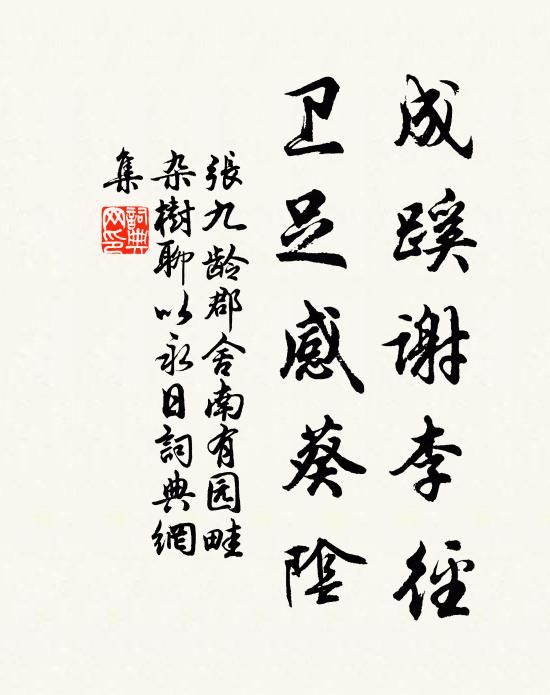 成蹊谢李径
卫足感葵陰
張九龄郡舍南有园畦
杂樹聊以永日詞典網
集
詞典網印